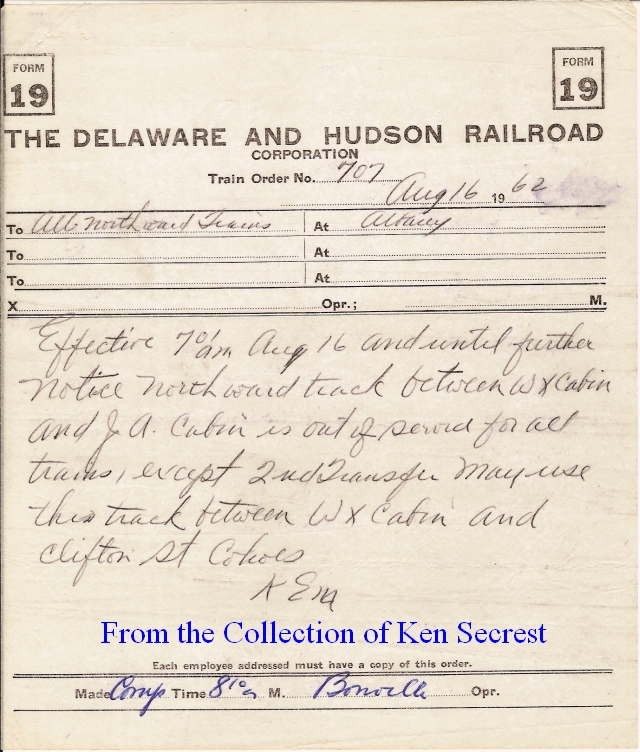 FORM 19
FORM 19
THE DELAWARE AND HUDSON RAILROAD
CORPORATION
Train Order No. 707
Aug 16 1962
To All Northward Trains At Albany
To At
To At
X Opr.; M.
Effective 701am Aug 16 and until further
Notice Northward track between WX Cabin
and J.A. Cabin is out of service for all
trains, except 2nd Transfer May use
this track between WX Cabin and
Clifton St Cohoes
From the Collection of Ken Secrest
Each employee addressed must have a copy of this order.
Made Comp Time 810a M. Bonville Opr.